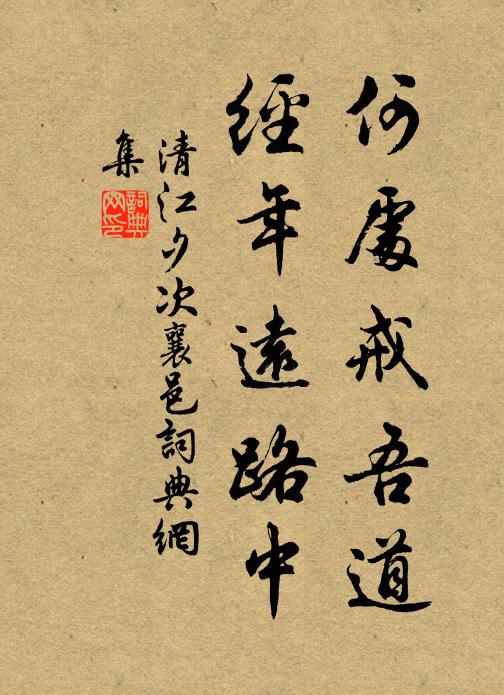 何處戒吾道
經年遠路中
清江夕次襄邑詞典網
集
詞典網印